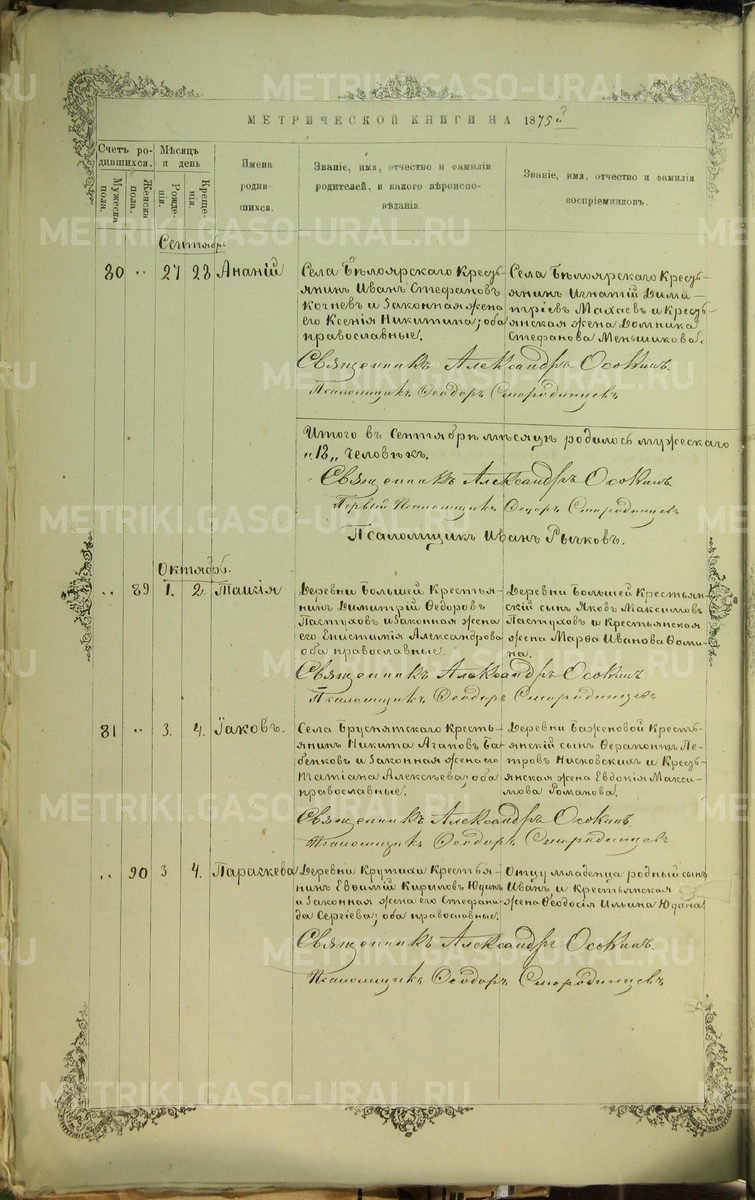 МЕТРИЧЕСКОЙ КНИГИ НА 1875й
Счетъ ро-
дившихся.
Мужеска
пола.
Женска
пола.
Мѣсяцъ
и день
Рожде-
нія.
Креще-
нія.
Имена
родив-
шихся.
Званіе, имя, отчество и фамилія
родителей, и какого вѣроиспо-
вѣданія.
Званіе, имя, отчество и фамилія
воспріемниковъ.
Сентябрь
80 " 27 28 Ананій
Села Бѣлоярскаго Кресть-
янинъ Иванъ Стефановъ
Кочневъ и законная жена
его Ксенія Никитина; оба
православные.
Села Бѣлоярскаго Кресть-
янинъ Игнатій Дими-
тріевъ Махаевъ и Кресть-
янская жена Домника
Стефанова Меньшикова.
Священникъ Александръ Осокинъ.
Псаломщикъ Ѳеодоръ Смородинцевъ
Итого въ Сентябрѣ мѣсяцѣ родилось мужескаго
"13" человѣкъ.
Священникъ Александръ Осокинъ
Первый Псаломщикъ Ѳеодоръ Смородинцевъ
Псаломщикъ Иванъ Рычковъ.
Октябрь.
" 89 1. 2. Таисія
Деревни Большей Крестья-
нинъ Димитрій Ѳедоровъ
Пастуховъ и законная жена
его Епистимія Александрова
оба православные.
Деревни Большей Крестьян-
скій сынъ Яковъ Максимовъ
Пастуховъ и Крестьянская
жена Марѳа Иванова Ѳоми-
на.
Священникъ Александръ Осокинъ
Псаломщикъ Ѳеодоръ Смородинцевъ
81 " 3. 4. Іаковъ.
Села Бруснятскаго Кресть-
янинъ Никита Агаповъ Ба-
бенковъ и законная жена его
Татіана Алексѣева; оба
православные.
Деревни Баженовой Кресть-
янскій сынъ Ѳерапонтъ Пе-
тровъ Нисковскихъ и Кресть-
янская жена Евдокія Макси-
мова Романова.
Священникъ Александръ Осокинъ
Псаломщикъ Ѳеодоръ Смородинцевъ
" 90 3 4. Параскева
Деревни Крутихи Крестья-
нинъ Евѳимій Кириловъ Юдинъ
и законная жена его Стефани-
да Сергіева; оба православные.
Отцу младенца родный сынъ
Иванъ и Крестьянская
жена Ѳеодосія Ильина Юдина
Священникъ Александръ Осокинъ.
Псаломщикъ Ѳеодоръ Смородинцевъ
METRIKI.GASO-URAL.RU